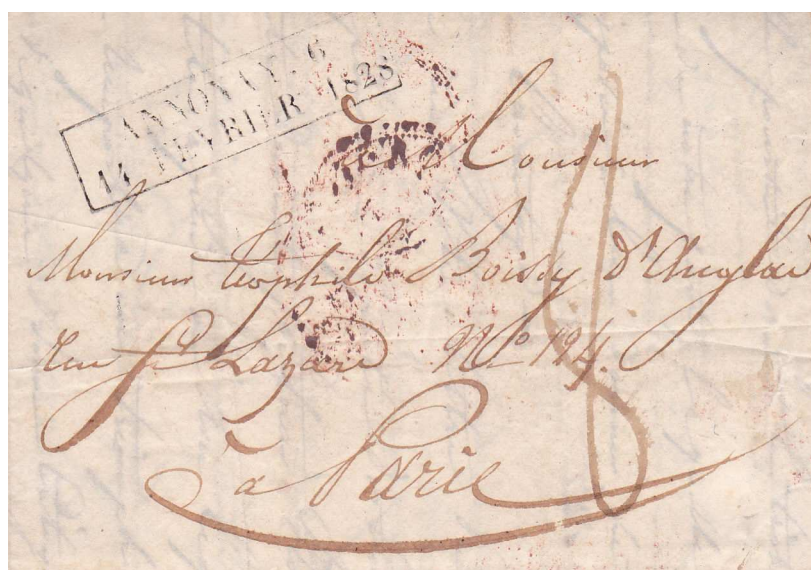 ANNONAY. 6
14 FEVRIER 1828
à Monsieur
Monsieur téophile Boissy d'Anglas
rue St Lazard No 124.
à Paris
8